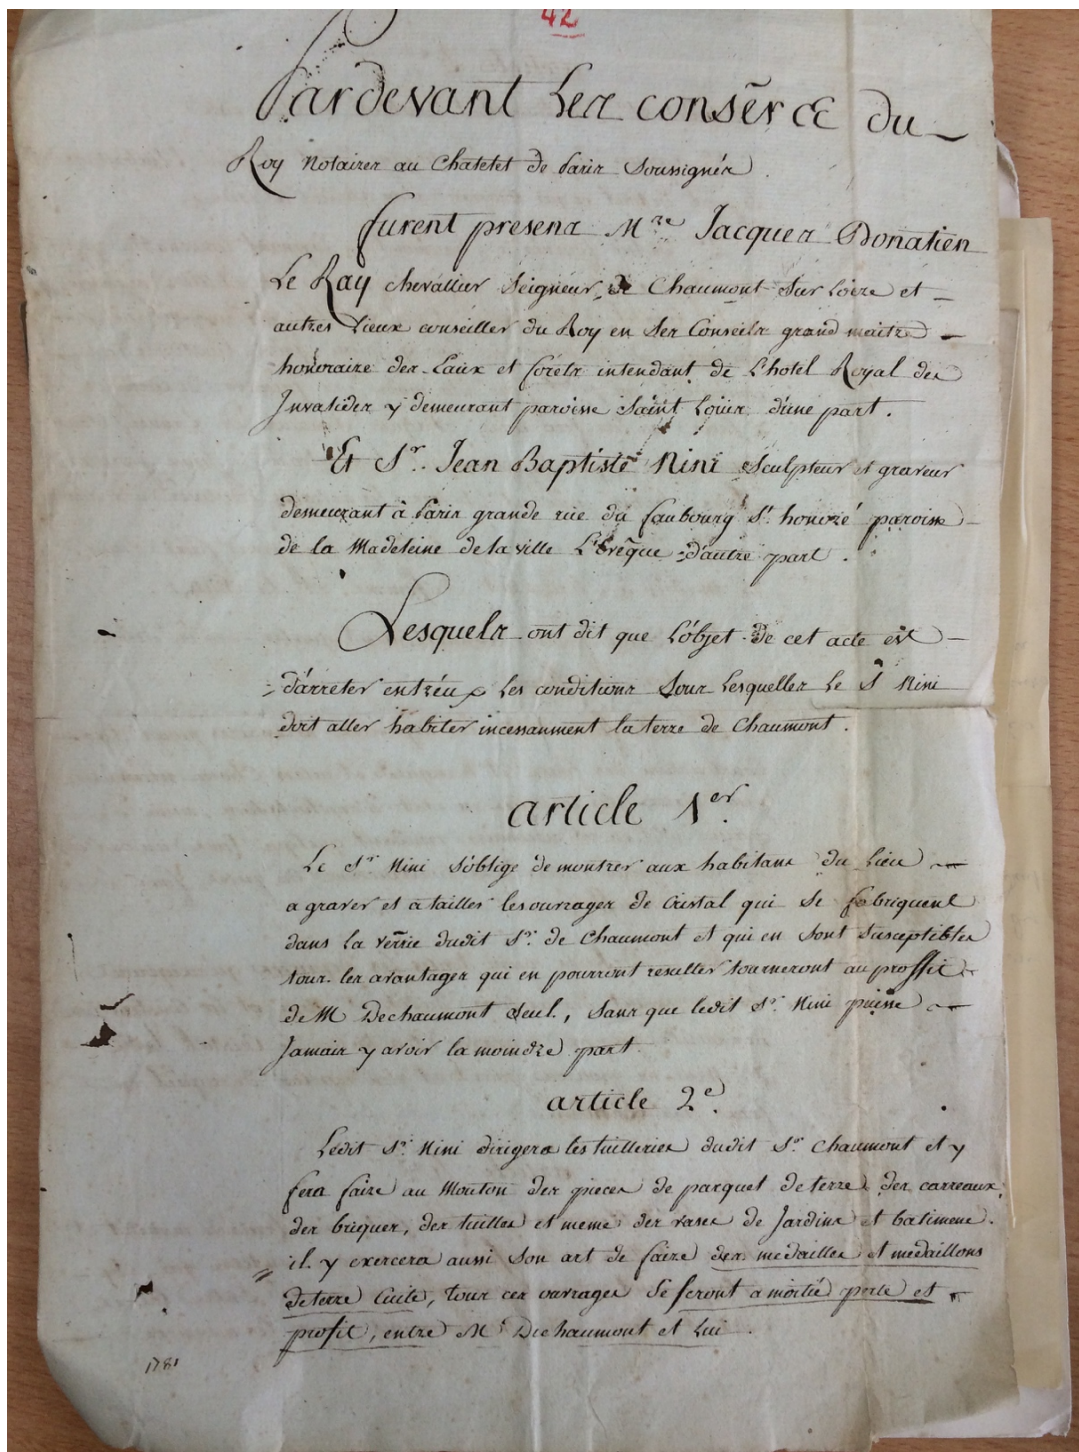 42
Pardevant Les consērs du
Roy Notaires au Chatelet de Paris Soussignés.
furent presens Mre. Jacques Donatien
Le Ray chevallier Seigneur de Chaumont Sur Loire et
autres Lieux conseiller du Roy en Ses Conseils grand maitre
honoraire des Eaux et forêts intendant de L'hotel Royal des
Invalides y demeurant paroisse Saint Louis d'une part.
Et Sr. Jean Baptiste Nini Sculpteur et graveur
demeurant à Paris grande rue du faubourg St. honoré paroisse
de la Madeleine de la ville L'Evêque d'autre part.
Lesquels ont dit que L'objet de cet acte est
d'arreter entr'eux les conditions Sous Lesquelles Le S Nini
doit aller habiter incessamment la terre de Chaumont.
article 1er.
Le Sr. Nini S'oblige de montrer aux habitans du Lieu
a graver et a tailler les ouvrages de Cristal qui se fabriquent
dans la verrie dudit Sr. de Chaumont et qui en Sont Susceptibles
tous les avantages qui en pourront resulter tourneront au proffit
de M Dechaumont Seul, Sans que ledit Sr. Nini puisse
Jamais y avoir la moindre part.
article 2e.
Ledit Sr. Nini dirigera les tuilleries dudit Sr. Chaumont et y
fera faire au Mouton des pieces de parquet de terre, des carreaux,
des briques, des tuilles et meme des vases de Jardins et batimens.
il y exercera aussi Son art de faire des medailles et medaillons
de terre Cuite, tous ces ouvrages Se feront a moitié perte et
profit, entre Mr Dechaumont et Lui.
1781